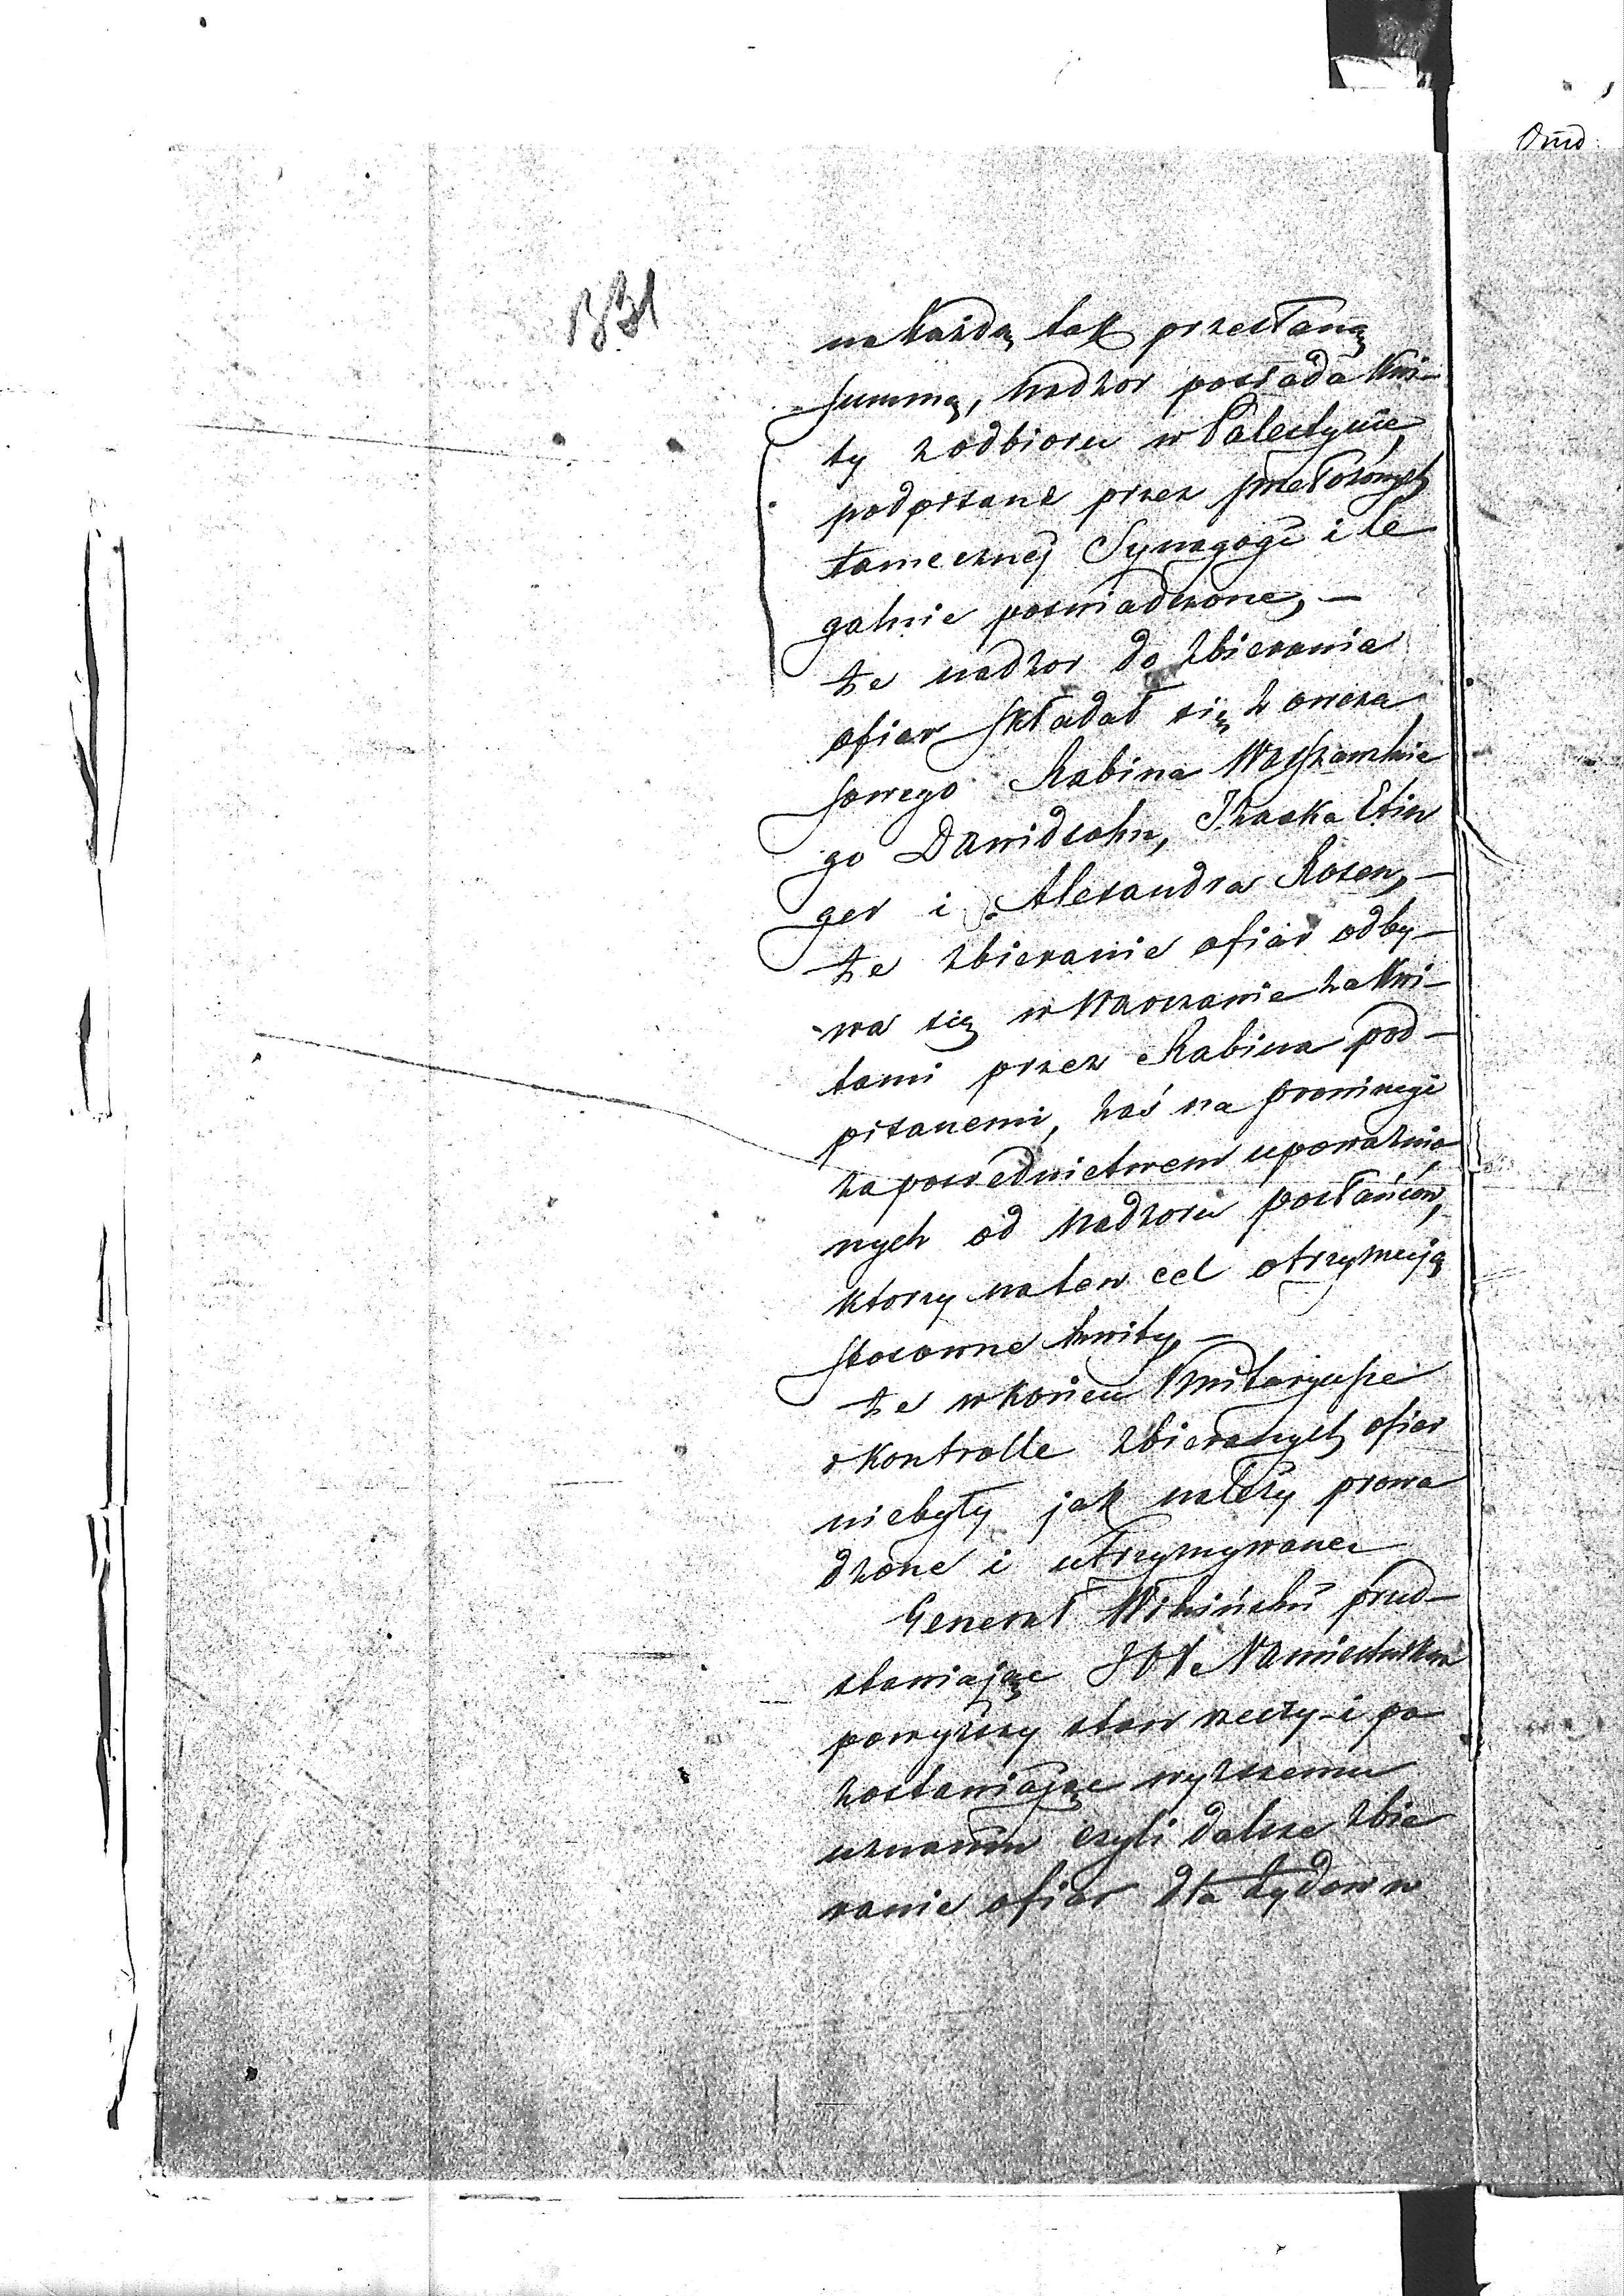 Omd
331
na każdą tak przesłaną
summę, nadzor posiada kwi-
ty z odbioru w Palestynie,
podpisane przez przełożonych
tamecznej Synagogi i le
galnie poswiadczone, –
że nadzor do zbierania
ofiar składał się z owcza
sowego Rabina Warszawskie
go Dawidsohn, Izaaka Etin
ger i Alexandra Rosen, –
że zbieranie ofiar odby-
wa się w Warszawie za kwi-
tami przez Rabina pod-
pisanemi, zaś na prowincyi
za posrednictwem upoważnio
nych od nadzoru posłańców,
ktorzy na ten cel otrzymują
stosowne kwity, –
że w końcu kwitaryusze
i kontrolle zbieranych ofiar
niebyły jak należy prowa
dzone i utrzymywane
Generał Wikiński przed-
stawiając JO Namiestnikowi
powyższy stan rzeczy i po
zostawiając wyższemu
uznaniu czyli dalsze zbie
ranie ofiar dla żydow w